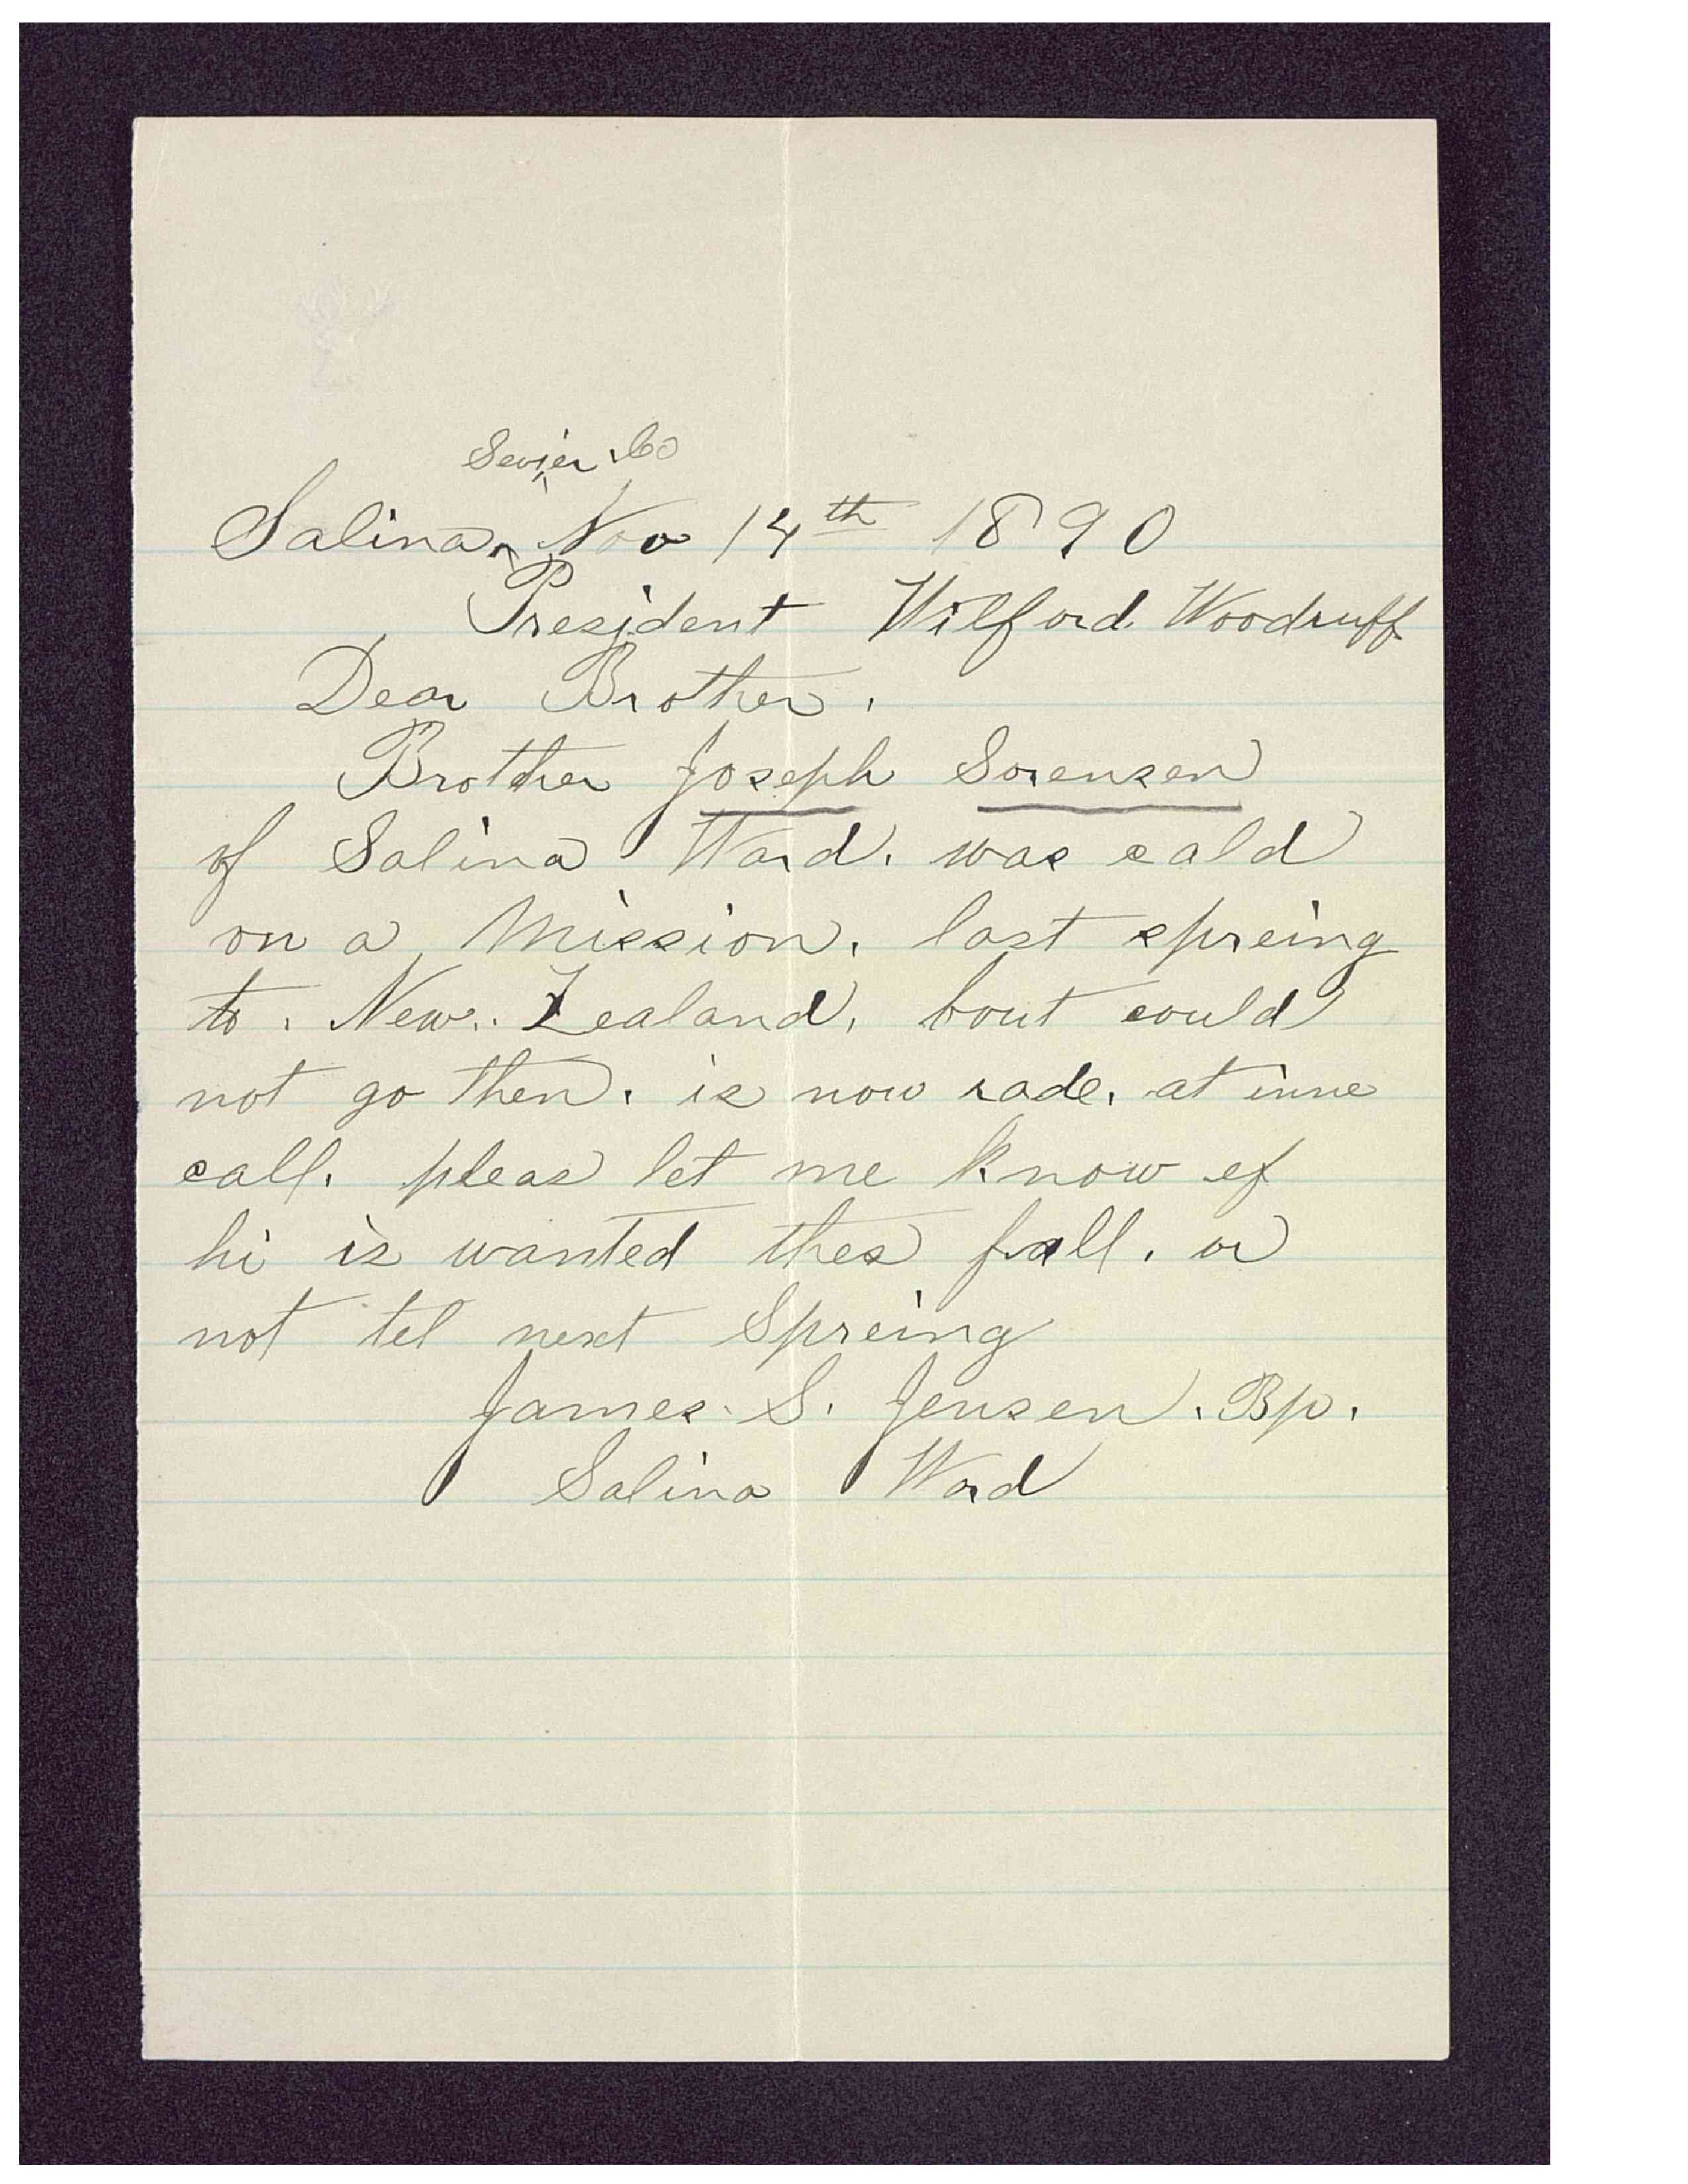 Sevier Co
Salina, Nov 14th 1890
President Wilford Woodruff
Dear Brother.
Brother Joseph Sorensen
of Salina Ward. was cald
on a Mission. last spreing
to. New.. Zealand. bout could
not go then. is now rade. at inne
call. pleas let me know ef
hi is wanted thes fall. or
not tel next Spreing
James. S. Jensen. Bp.
Salina Ward